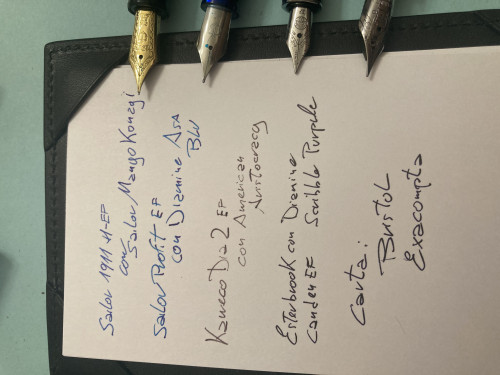 Sailor 1911 H-EF
con
Sailor Manyo Konagi
Sailor Profit EF
con Diamine ASA
BLU
Kaweco Dia 2 EF
con American
Aristocracy
Esterbrook con Diamine
Camden EF Scribble Purple
Carta:
Bristol
Exacompta